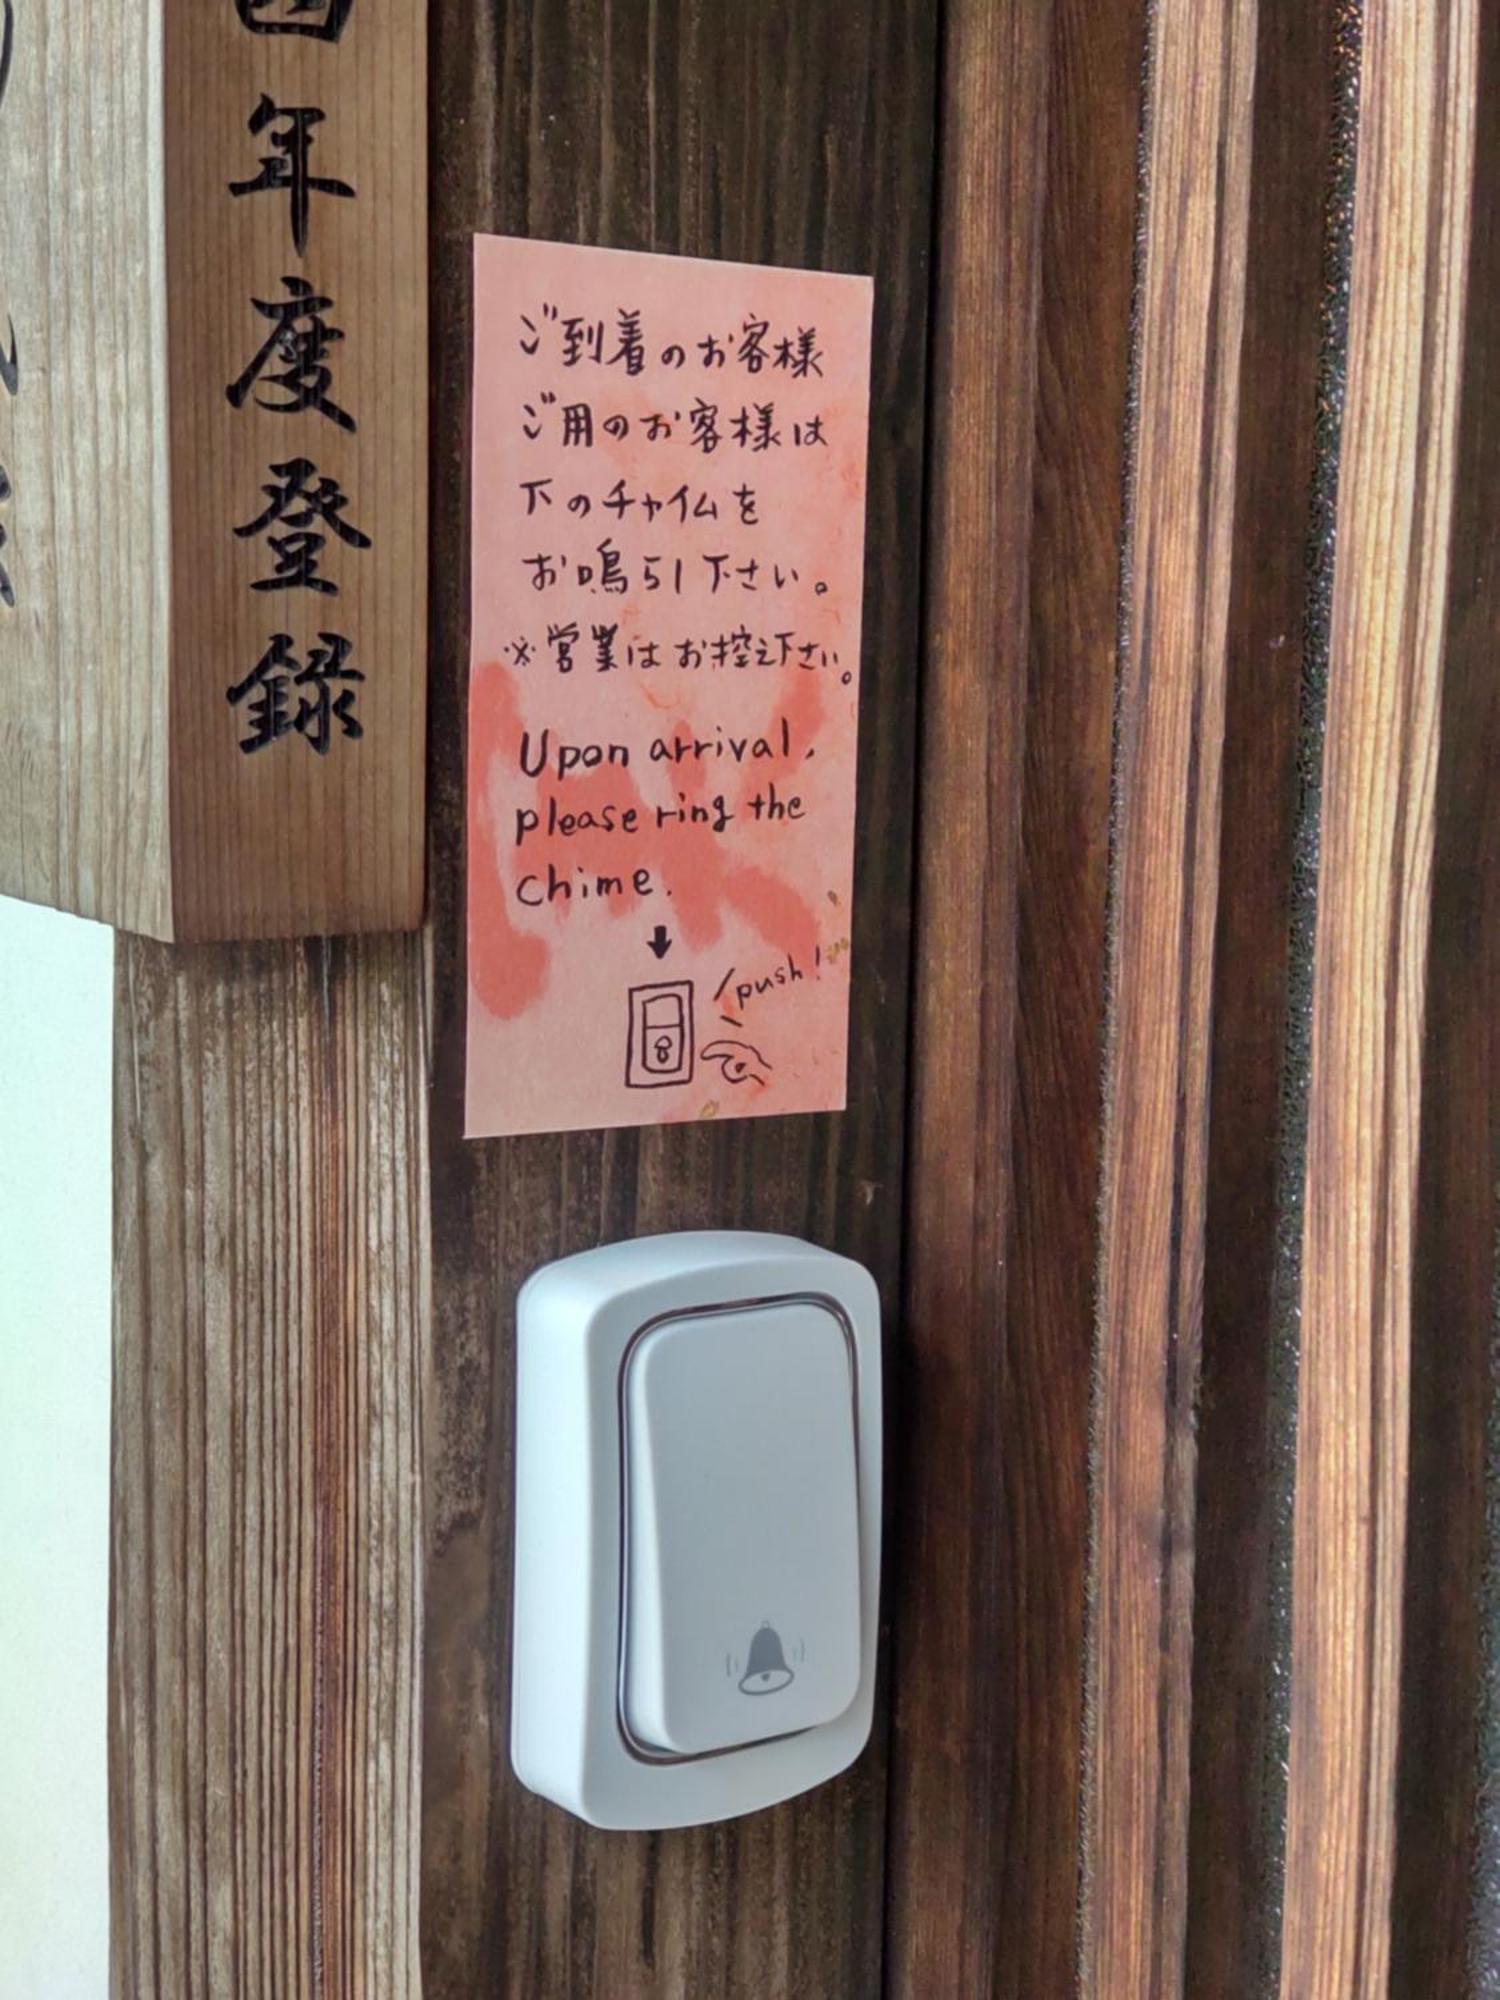 年度登録
ご到着のお客様
ご用のお客様は
下のチャイムを
お鳴らし下さい。
※営業はお控え下さい。
Upon arrival,
please ring the
chime.
push!